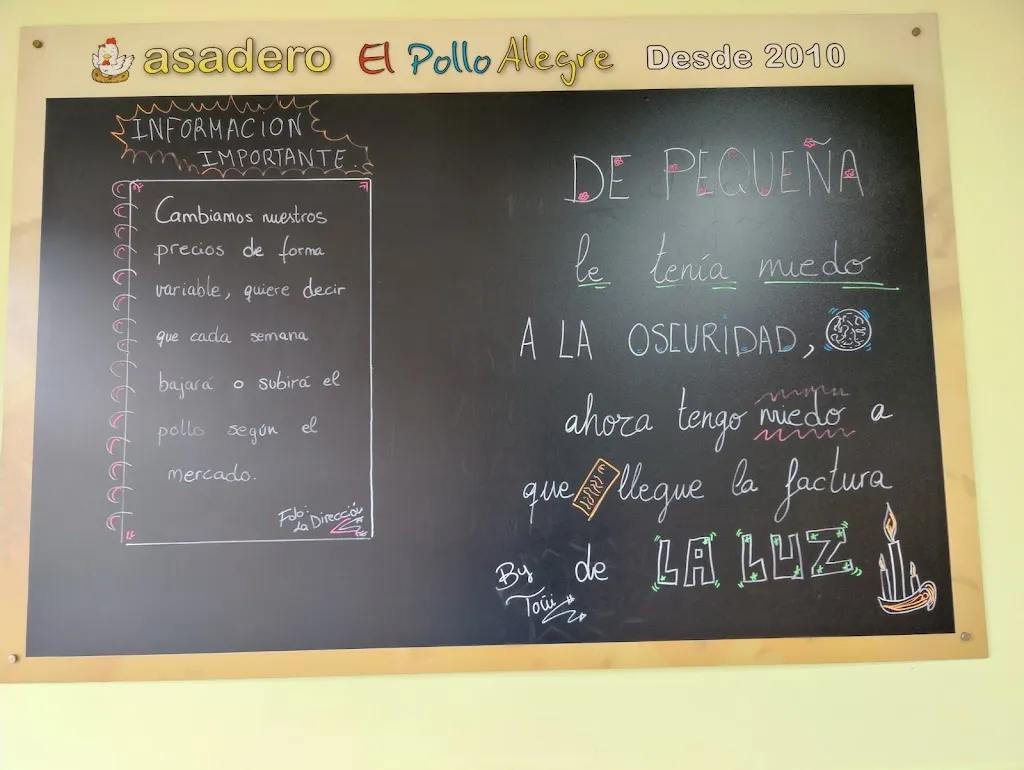 asadero El Pollo Alegre Desde 2010
INFORMACION
IMPORTANTE.
Cambiamos nuestros
precios de forma
variable, quiere decir
que cada semana
bajará o subirá el
pollo según el
mercado.
Fdo:
La Dirección
DE PEQUEÑA
le tenía miedo
A LA OSCURIDAD,
ahora tengo miedo a
que llegue la factura
de LA LUZ
By